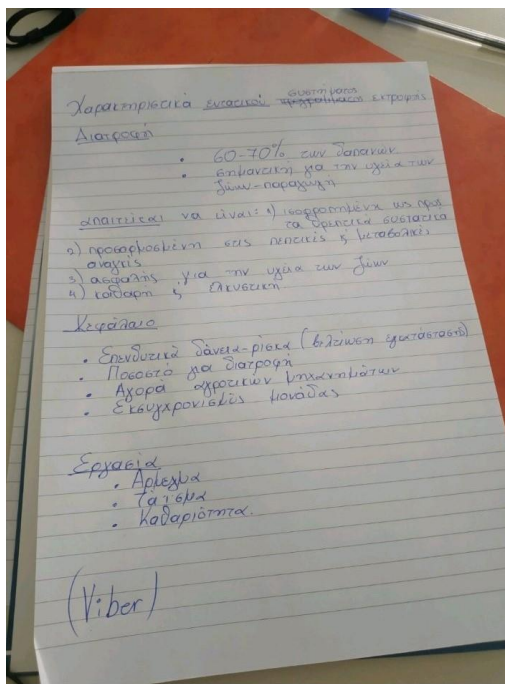 Χαρακτηριστικά εντατικού συστήματος εκτροφής
Διατροφή
• 60-70% των δαπανών
• σημαντική για την υγεία των
ζώων-παραγωγή
απαιτείται να είναι: 1) ισορροπημένη ως προς
τα θρεπτικά συστατικά
2) προσαρμοσμένη στις πεπτικές ή μεταβολικές
ανάγκες
3) ασφαλής για την υγεία των ζώων
4) καθαρή ς ελκυστική
Κεφάλαιο
• Επενδυτικά δάνεια-ρίσκα (βελτίωση εγκατάστασης)
• Ποσοστό για διατροφή
• Αγορά αγροτικών μηχανημάτων
• Εκσυγχρονισμός μονάδας
Εργασία
• Άρμεγμα
• Τάισμα
• Καθαριότητα.
(Viber)